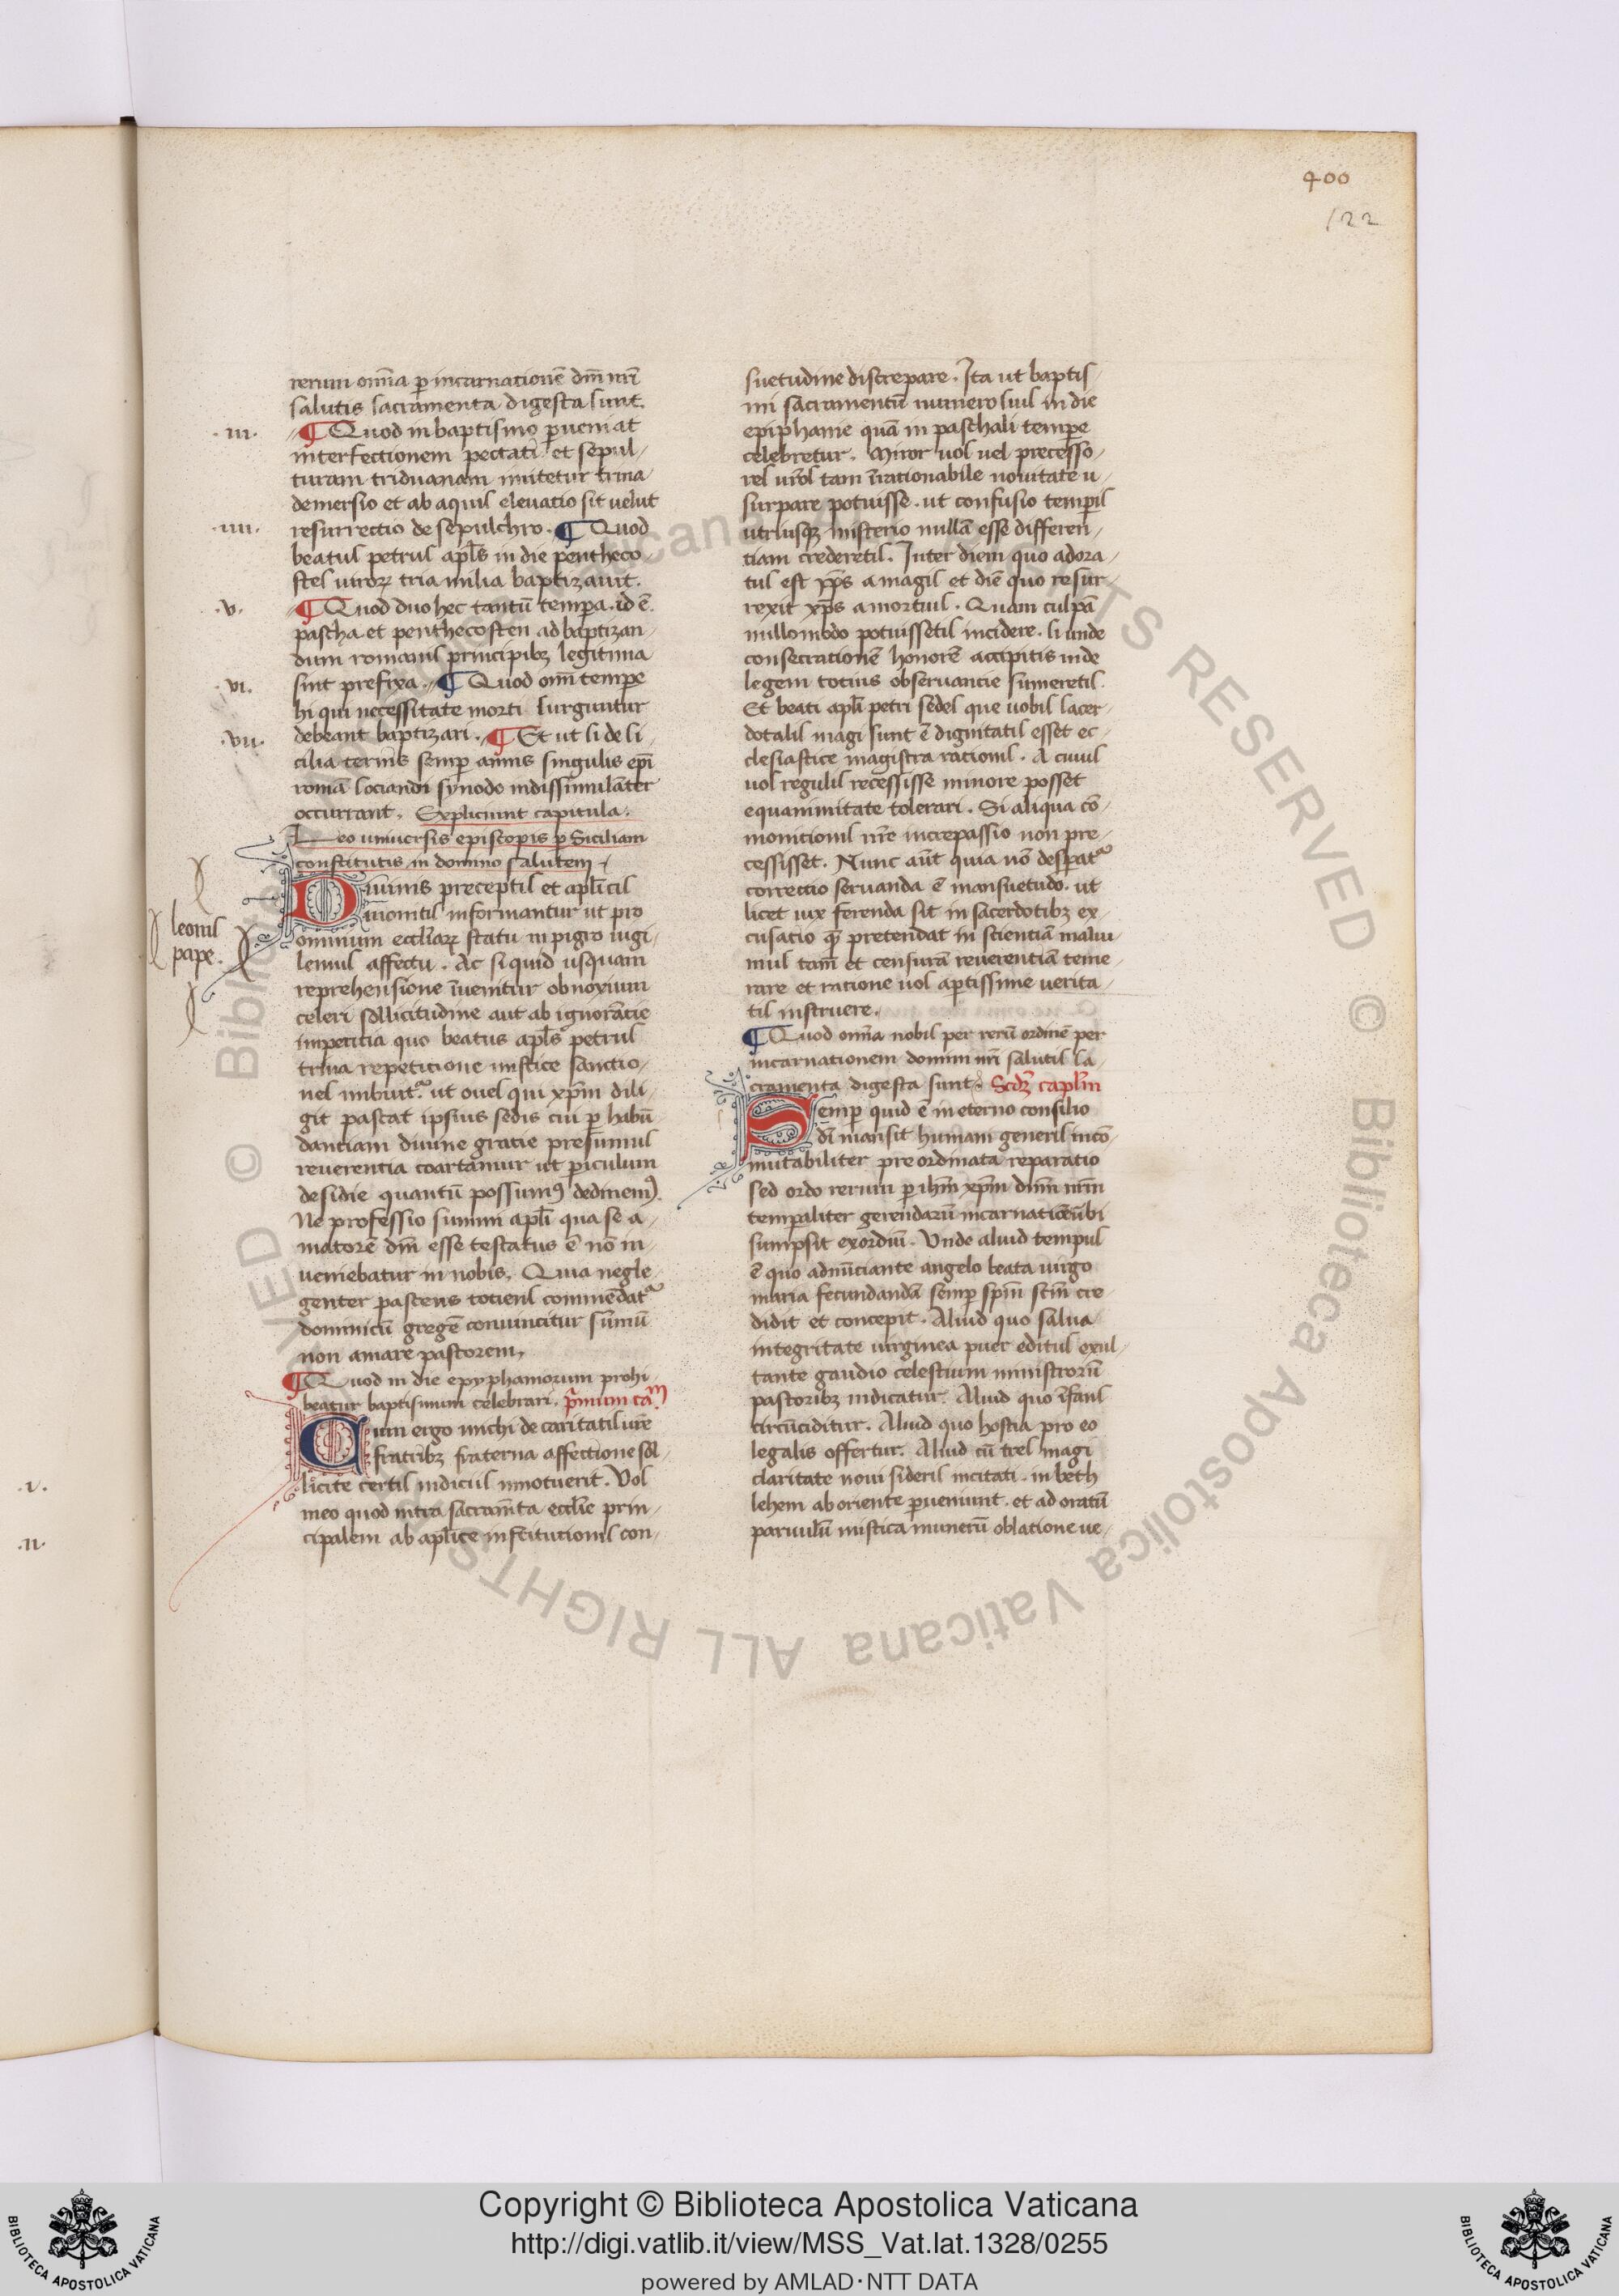 400
122
rerum om̄ia p̱ incarnationē dm̄ nr̄i
salutis sacramenta digesta sunt.
.iii. ¶ Quod in baptismo p̱ueniat
interfectionem peccati et sepul-
turam triduanam imitetur trina
demersio et ab aquis eleuatio sit uelut
.iiii. resurrectio de sepulchro. ¶ Quod
beatus petrus apl̄s in die pentheco-
stes uiroꝝ tria milia baptizauit.
.v. ¶ Quod duo hec tantū temp̱a. id ē
pascha et penthecosten ad baptizan-
dum romanis principibꝫ legitima
.vi. sint prefixa. ¶ Quod om̄i temp̱e
hi qui necessitate morti surguntur
.vii. debeant baptizari. ¶ Et ut si de si-
cilia ternis semp̱ annis singulis ep̄i
romā sociandi synodo indissimulāter
occurrant. Expliciunt capitula.
Leo uniuersis episcopis p̱ Siciliam
constitutis in domino salutem.
leonis
pape.
Diuinis preceptis et apl̄icis
monitis informantur ut pro
omnium eccl̄iaꝝ statu inpigro uigi-
lemus affectu. Ac si quid usquam
reprehensione īuenitur obnoxium
celeri sollicitudine aut ab ignorācie
imperitia quo beatus apl̄s petrus
trina repeticione mistice sanctio-
nes imbuit᷑ ut oues qui xp̄m dili-
git pascat ipsius sedis cui p̱ habū
danciam diuine gratie presumus
reuerentia coartamur ut p̱iculum
desidie quantū possumꝰ declinemꝰ.
Ne professio summi apl̄i qua se a-
matorē dm̄ esse testatus ē nō in-
ueniebatur in nobis. Quia negle
genter pascens tociens commēdat᷑
dominicū gregē conuincitur sūmū
non amare pastorem.
¶ Quod in die epyphaniorum prohi
beatur baptismum celebrari. p̄mum cam̄
Cum ergo michi de caritatis ur̄e
fratribꝫ fraterna affectione sol-
licite certis indiciis innotuerit. Vos
in eo quod intra sacram̄ta eccl̄ie prin-
cipalem ab apl̄ice institucionis con-
suetudine discrepare. Ita ut baptis-
mi sacramentū numerosius in die
epiphanie quā in paschali temp̱e
celebretur. Miror uos uel precesso-
res ur̄os tam īrationabile nouitate u-
surpare potuisse. ut confusio temp̱is
utriusqꝫ misterio nullā esse differen-
tiam crederetis. Inter diem quo adora-
tus est xp̄s a magis et diē quo resur-
rexit xp̄s a mortuis. Quam culpā
nullomodo potuissetis incidere. si unde
consecrationē honorē accipitis inde
legem totius obseruantie sumeretis.
Et beati apl̄i petri sedes que uobis sacer-
dotalis magi sunt ē dignitatis esset ec-
clesiastice magistra rationis. A cuius
uos regulis recessisse minore posset
equanimitate tolerari. Si aliqua cō-
monicionis nr̄e increpassio non pre-
cessisset. Nunc aūt quia nō desp̱at᷑
correctio seruanda ē mansuetudo. ut
licet uix ferenda sit in sacerdotibꝫ ex-
cusatio q̄ pretendat in scientiā malui-
mus tam̄ et censurā reuerentiā teme-
rare et ratione uos ap̱tissime uerita-
tis instruere.
¶ Quod om̄ia nobis per rerū ordinē per
incarnationem domini nr̄i salutis sa-
cramenta digesta sunt. Scdꝫ capl̄m
Semp̱ quid ē in eterno consilio
dī mansit humani generis incō-
mutabiliter preordinata reparatio
sed ordo rerum p̱ ihm̄ xp̄m dnm̄ nrm̄
temp̱aliter gerendarū incarnatiōe ūbi
sumpsit exordiū. Vnde aliud tempus
ē quo adnūciante angelo beata uirgo
maria fecundandā semp̱ sp̄m scm̄ cre-
didit et concepit. Aliud quo salua
integritate uirginea puer editus exul-
tante gaudio celestium ministrorū
pastoribꝫ indicatur. Aliud quo īfans
circūciditur. Aliud quo hostia pro eo
legalis offertur. Aliud cū tres magi
claritate noui sideris incitati. in beth
lehem ab oriente p̱ueniunt. et ad oratū
paruulū mistica munerū oblatione ue-
.v.
.ii.
© Biblioteca Apostolica Vaticana ALL RIGHTS RESERVED
Copyright © Biblioteca Apostolica Vaticana
http://digi.vatlib.it/view/MSS_Vat.lat.1328/0255
powered by AMLAD·NTT DATA
BIBLIOTECA APOSTOLICA VATICANA
BIBLIOTECA APOSTOLICA VATICANA